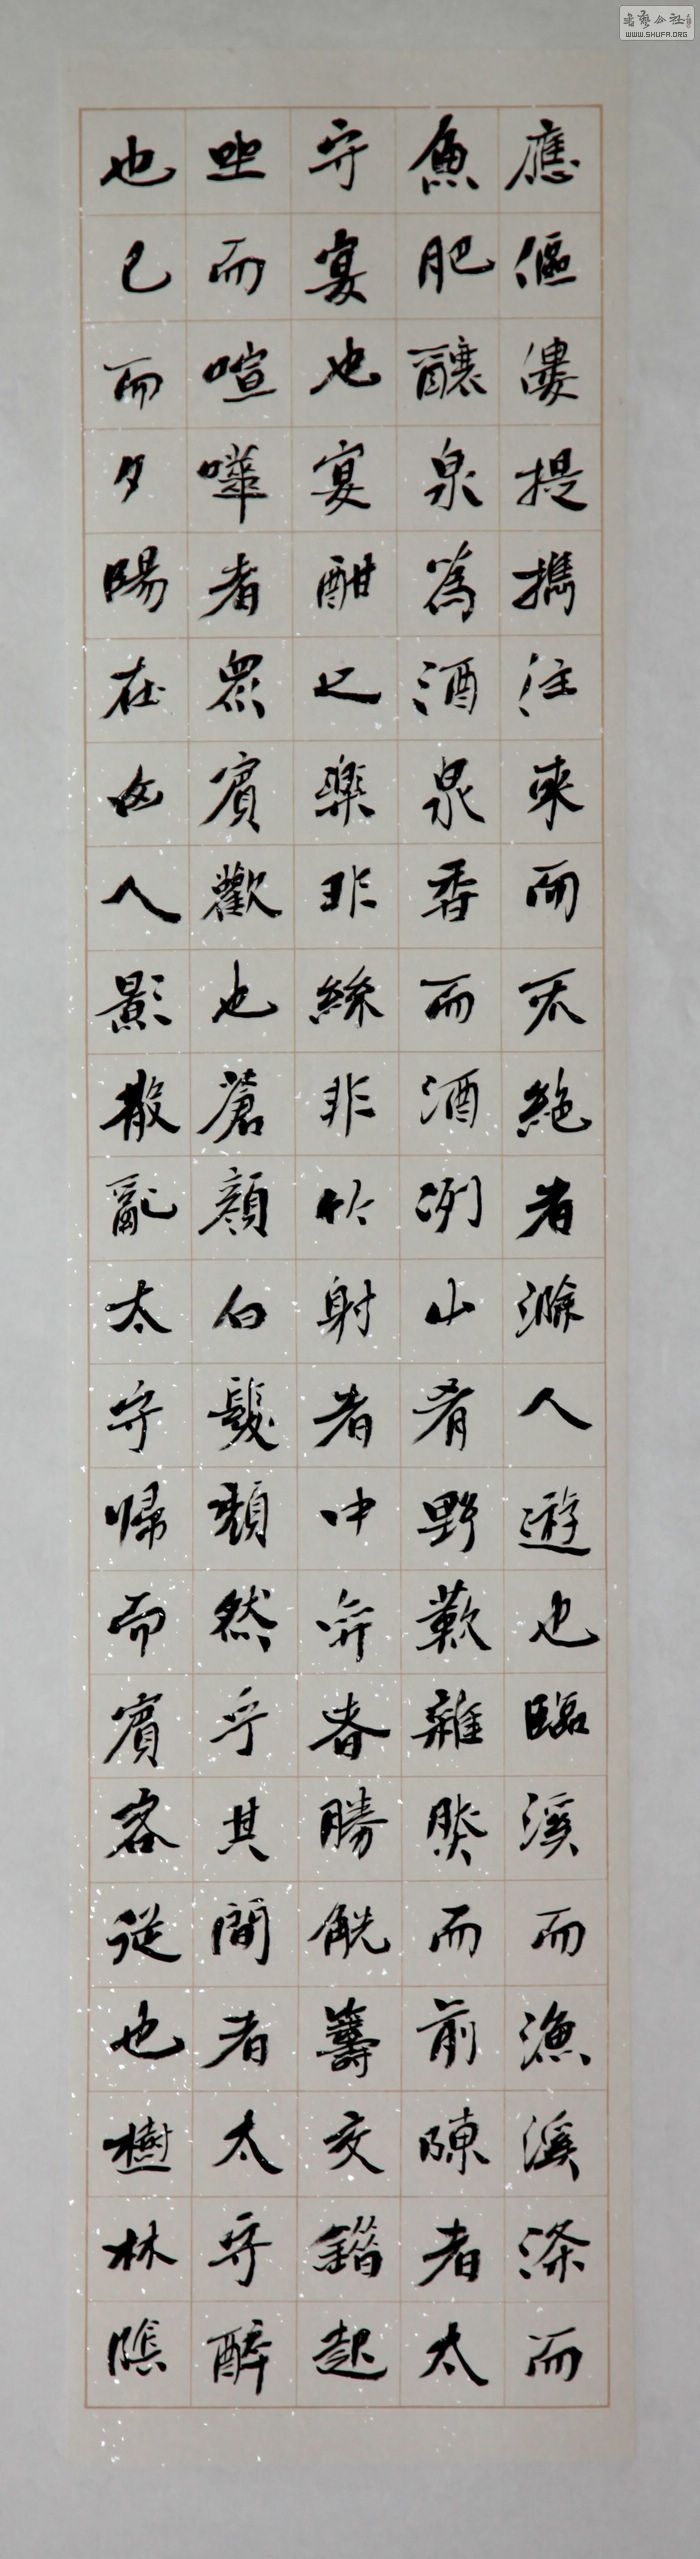 應傴僂提攜往來而不絕者滁人遊也臨溪而漁溪深而
魚肥釀泉為酒泉香而酒冽山肴野蔌雜然而前陳者太
守宴也宴酣之樂非絲非竹射者中弈者勝觥籌交錯起
坐而喧嘩者眾賓歡也蒼顏白髮頹然乎其間者太守醉
也已而夕陽在山人影散亂太守歸而賓客從也樹林陰
书艺公社
WWW.SHUFA.ORG